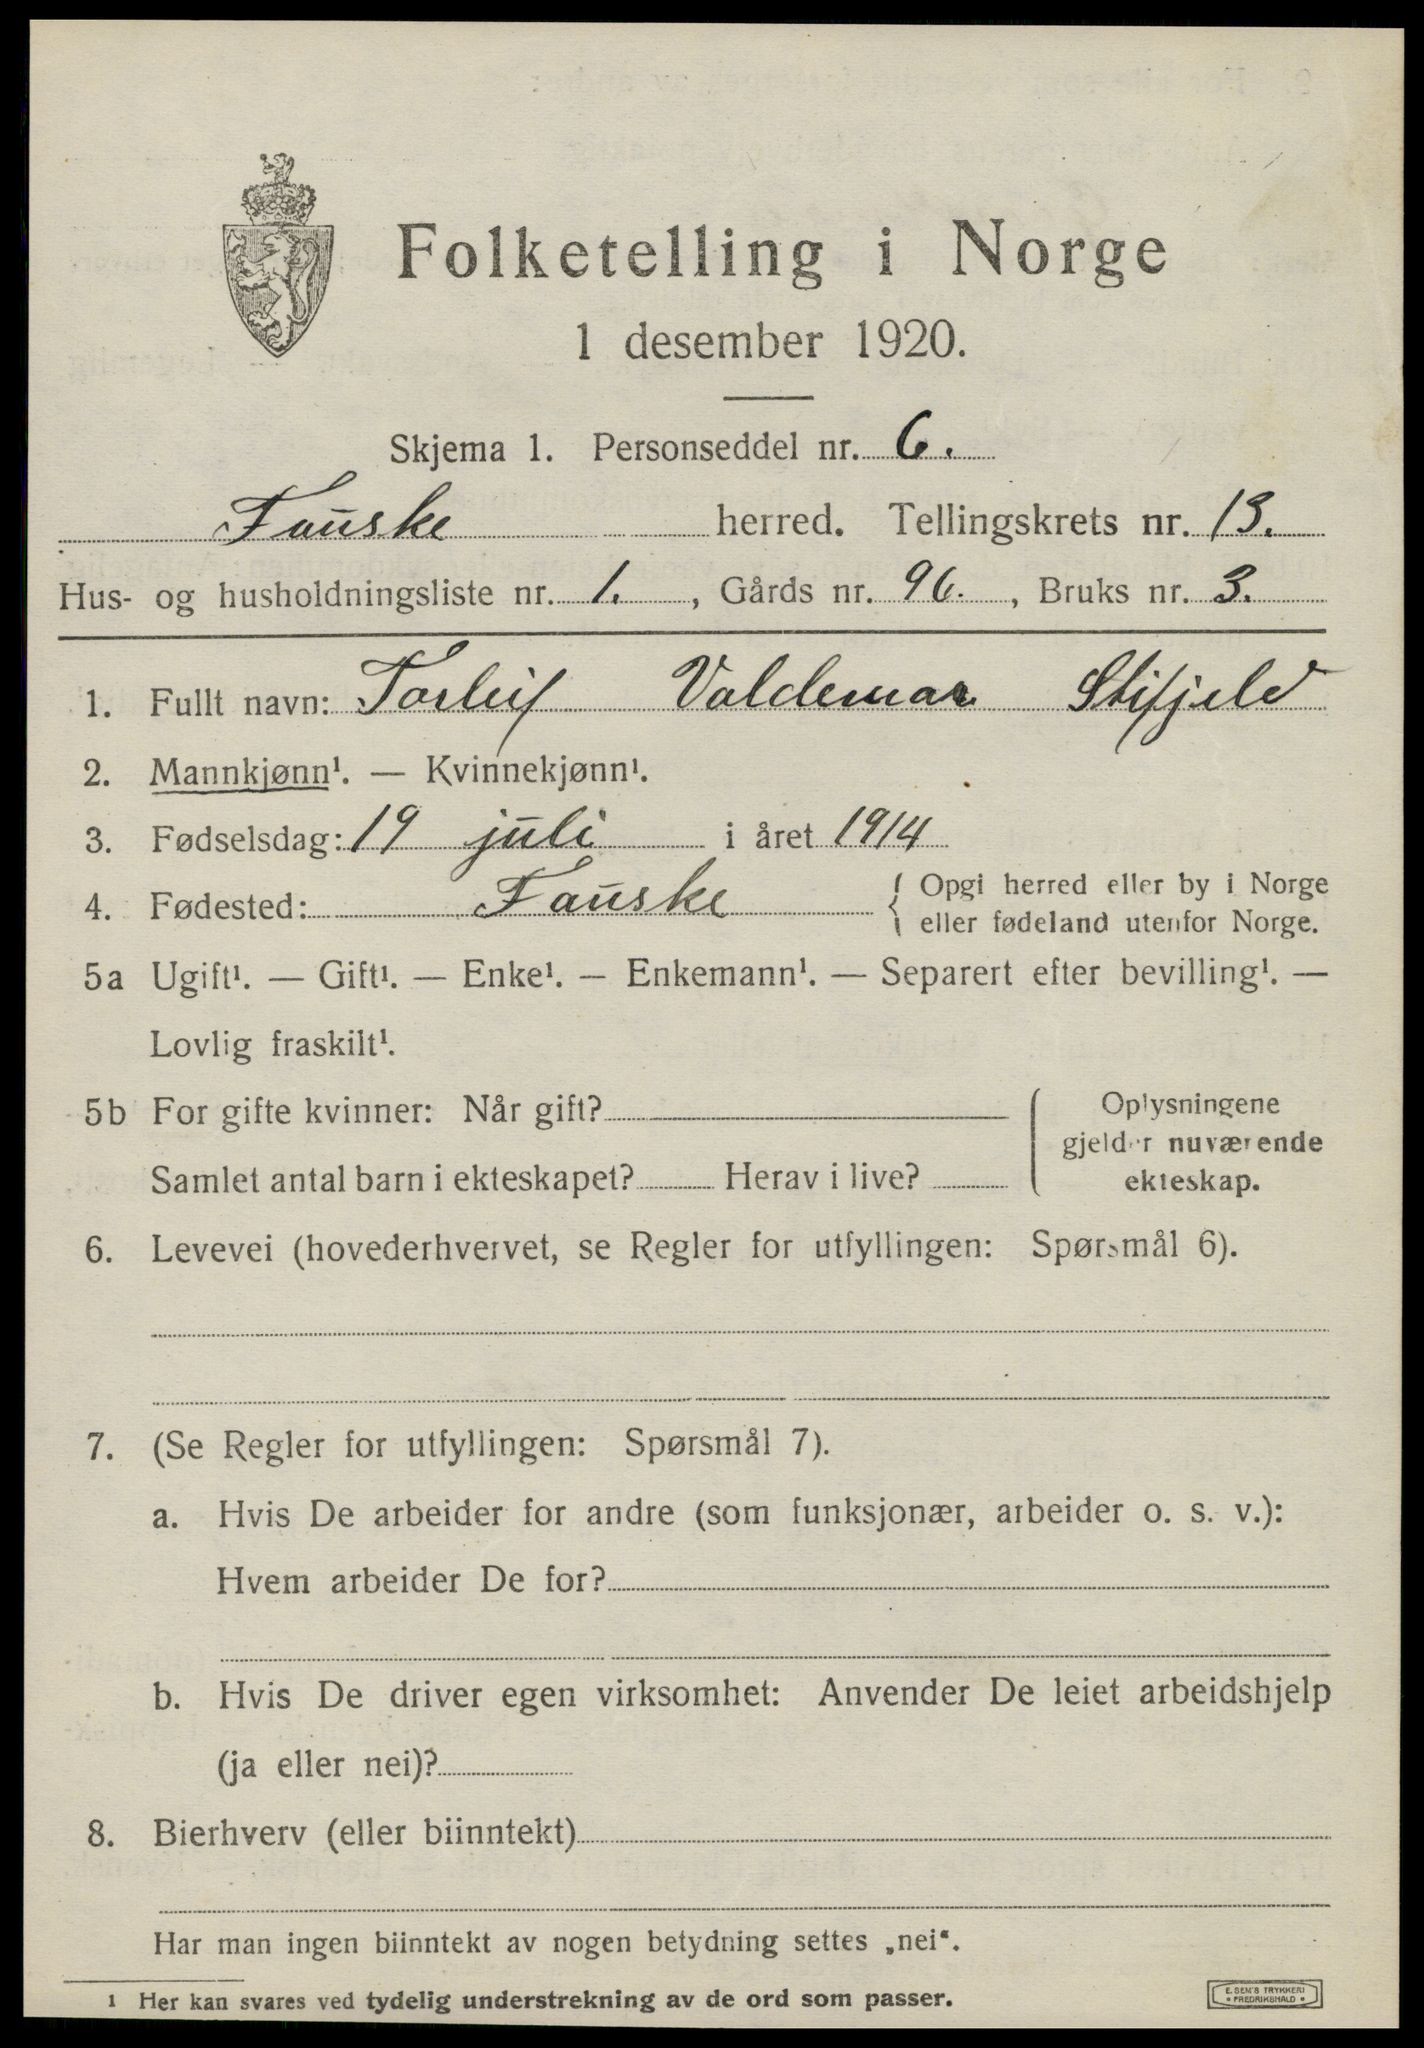 Folketelling i Norge
1 desember 1920.
Skjema 1. Personseddel nr. 6.
Fauske herred. Tellingskrets nr. 13.
Hus- og husholdningsliste nr. 1., Gårds nr. 96., Bruks nr. 3.
1. Fullt navn: Torleif Valdemar Stifjeld
2. Mannkjønn¹. — Kvinnekjønn¹.
3. Fødselsdag: 19 juli i året 1914
4. Fødested: Fauske { Opgi herred eller by i Norge
eller fødeland utenfor Norge.
5a Ugift¹. — Gift¹. — Enke¹. — Enkemann¹. — Separert efter bevilling¹. —
Lovlig fraskilt¹.
5b For gifte kvinner: Når gift?
Samlet antal barn i ekteskapet? Herav i live?
Oplysningene
gjelder nuværende
ekteskap.
6. Levevei (hovederhvervet, se Regler for utfyllingen: Spørsmål 6).
7. (Se Regler for utfyllingen: Spørsmål 7).
a. Hvis De arbeider for andre (som funksjonær, arbeider o. s. v.):
Hvem arbeider De for?
b. Hvis De driver egen virksomhet: Anvender De leiet arbeidshjelp
(ja eller nei)?
8. Bierhverv (eller biinntekt)
Har man ingen biinntekt av nogen betydning settes „nei“.
1 Her kan svares ved tydelig understrekning av de ord som passer.
E. SEM'S TRYKKERI
• FREDRIKSHALD •